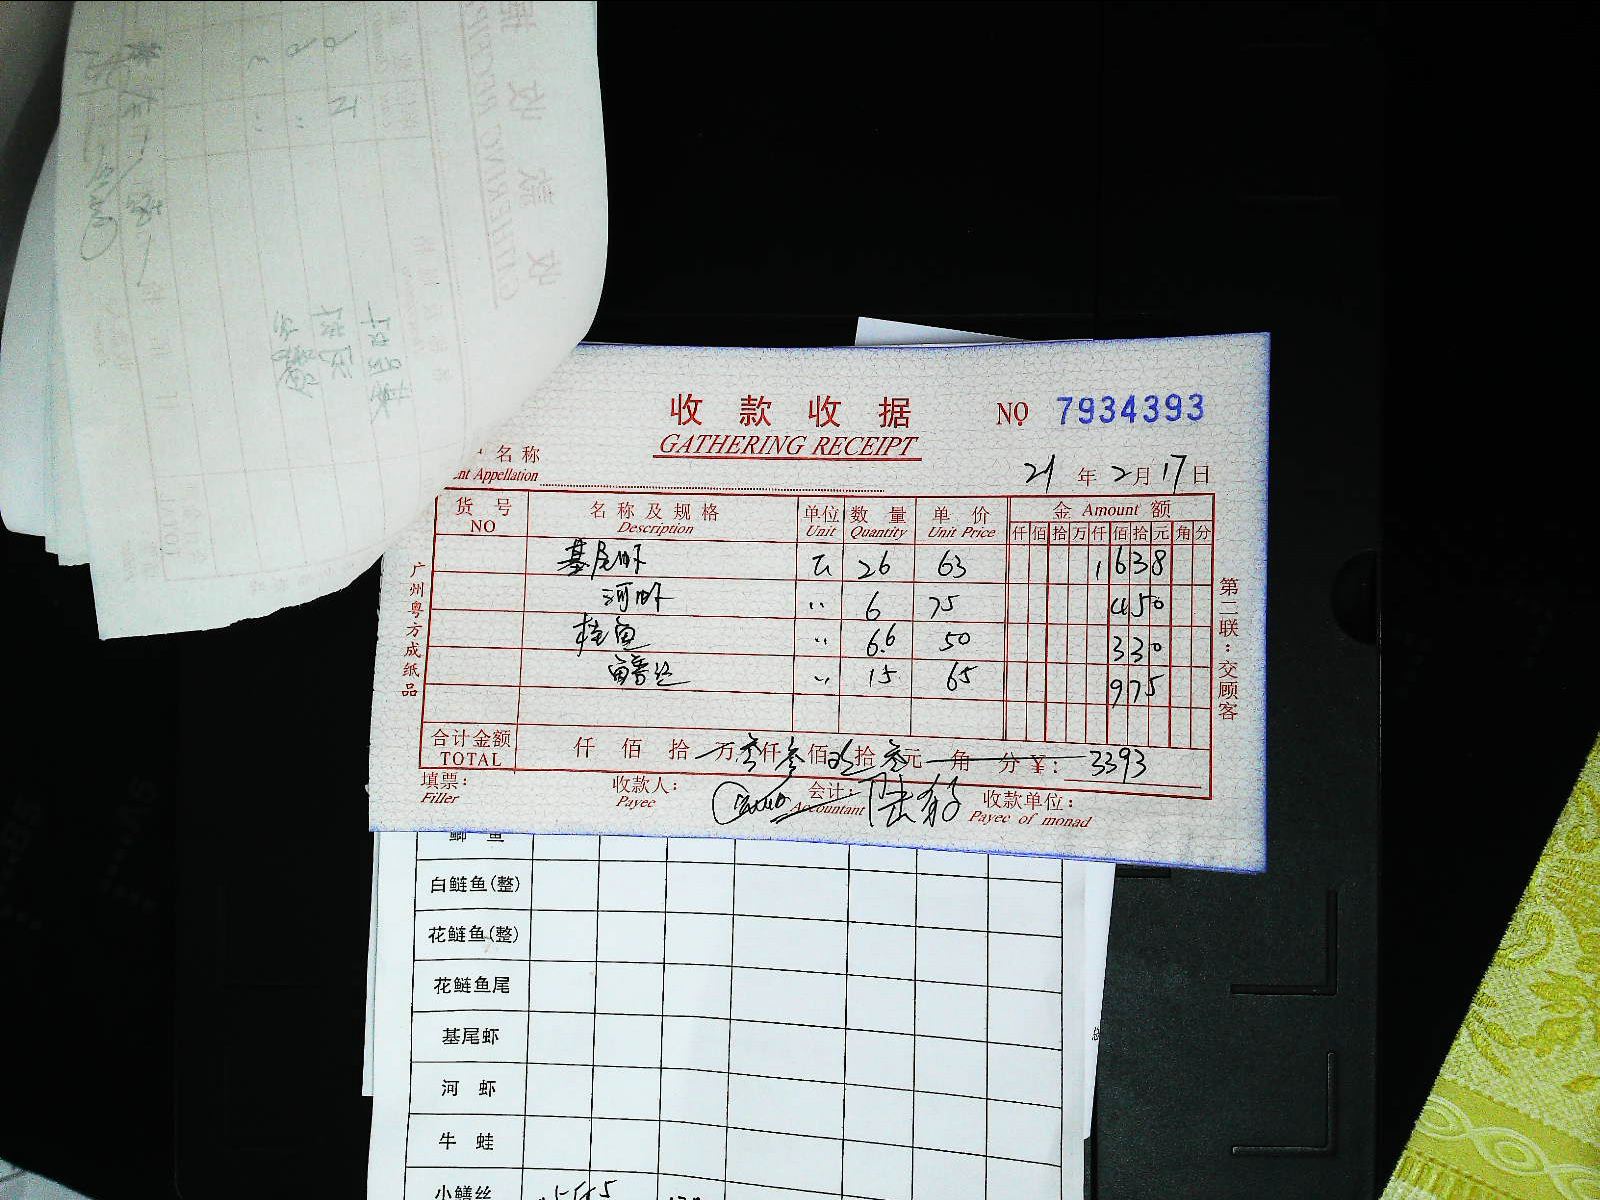 收款收据
GATHERING RECEIPT
NO 7934393
名称
nt Appellation
21年2月17日
货号 名称及规格 单位 数量 单价 金 Amount 额
NO Description Unit Quantity Unit Price 仟佰拾万仟佰拾元角分
基尾虾 斤 26 63 1638
河虾 〃 6 75 450
桂鱼 〃 6.6 50 330
鳝丝 〃 15 65 975
合计金额 仟佰拾万叁仟叁佰玖拾叁元角分¥: 3393
TOTAL
填票: 收款人: 会计: 收款单位:
Filler Payee Accountant Payee of monad
广州粤方成纸品
第二联:交顾客
鲫鱼
白鲢鱼(整)
花鲢鱼(整)
花鲢鱼尾
基尾虾
河虾
牛蛙
小鳝丝